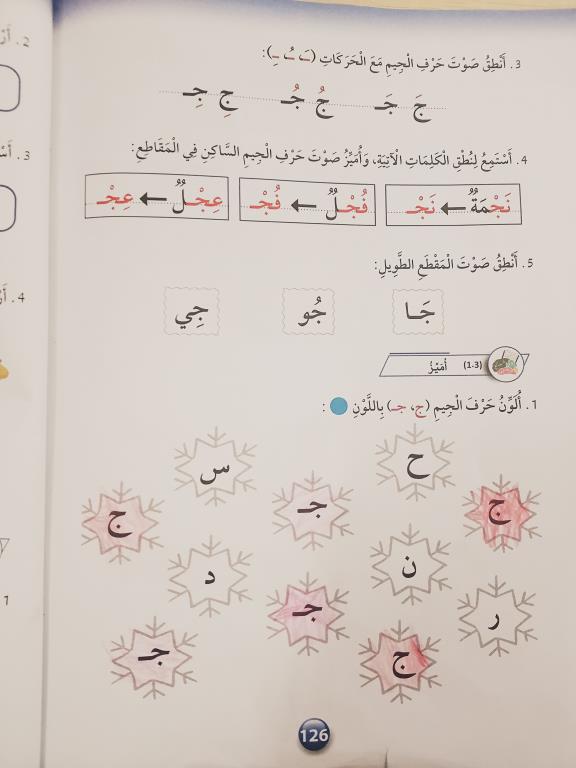 3. أَنْطِقُ صَوْتَ حَرْفِ الْجِيمِ مَعَ الْحَرَكَاتِ (ـَ ـُ ـِ):
جَ جَـ جُ جُـ جِ جِـ
4. أَسْتَمِعُ لِنُطْقِ الْكَلِمَاتِ الْآتِيَةِ، وَأُمَيِّزُ صَوْتَ حَرْفِ الْجِيمِ السَّاكِنِ فِي الْمَقَاطِعِ:
نَجْمَةٌ ← نَجْـ فُجْلٌ ← فُجْـ عِجْلٌ ← عِجْـ
5. أَنْطِقُ صَوْتَ الْمَقْطَعِ الطَّوِيلِ:
جَـا جُو جِي
(1-3) أُمَيِّزُ
1. أُلَوِّنُ حَرْفَ الْجِيمِ (ج، جـ) بِاللَّوْنِ :
س ح
ج جـ ج
د ن
جـ ر
جـ ج
126
2. أَ
3. أَسْ
4. أَ
1